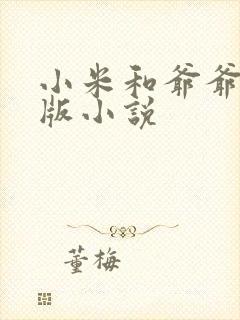 小米和爷爷
版小说
董梅